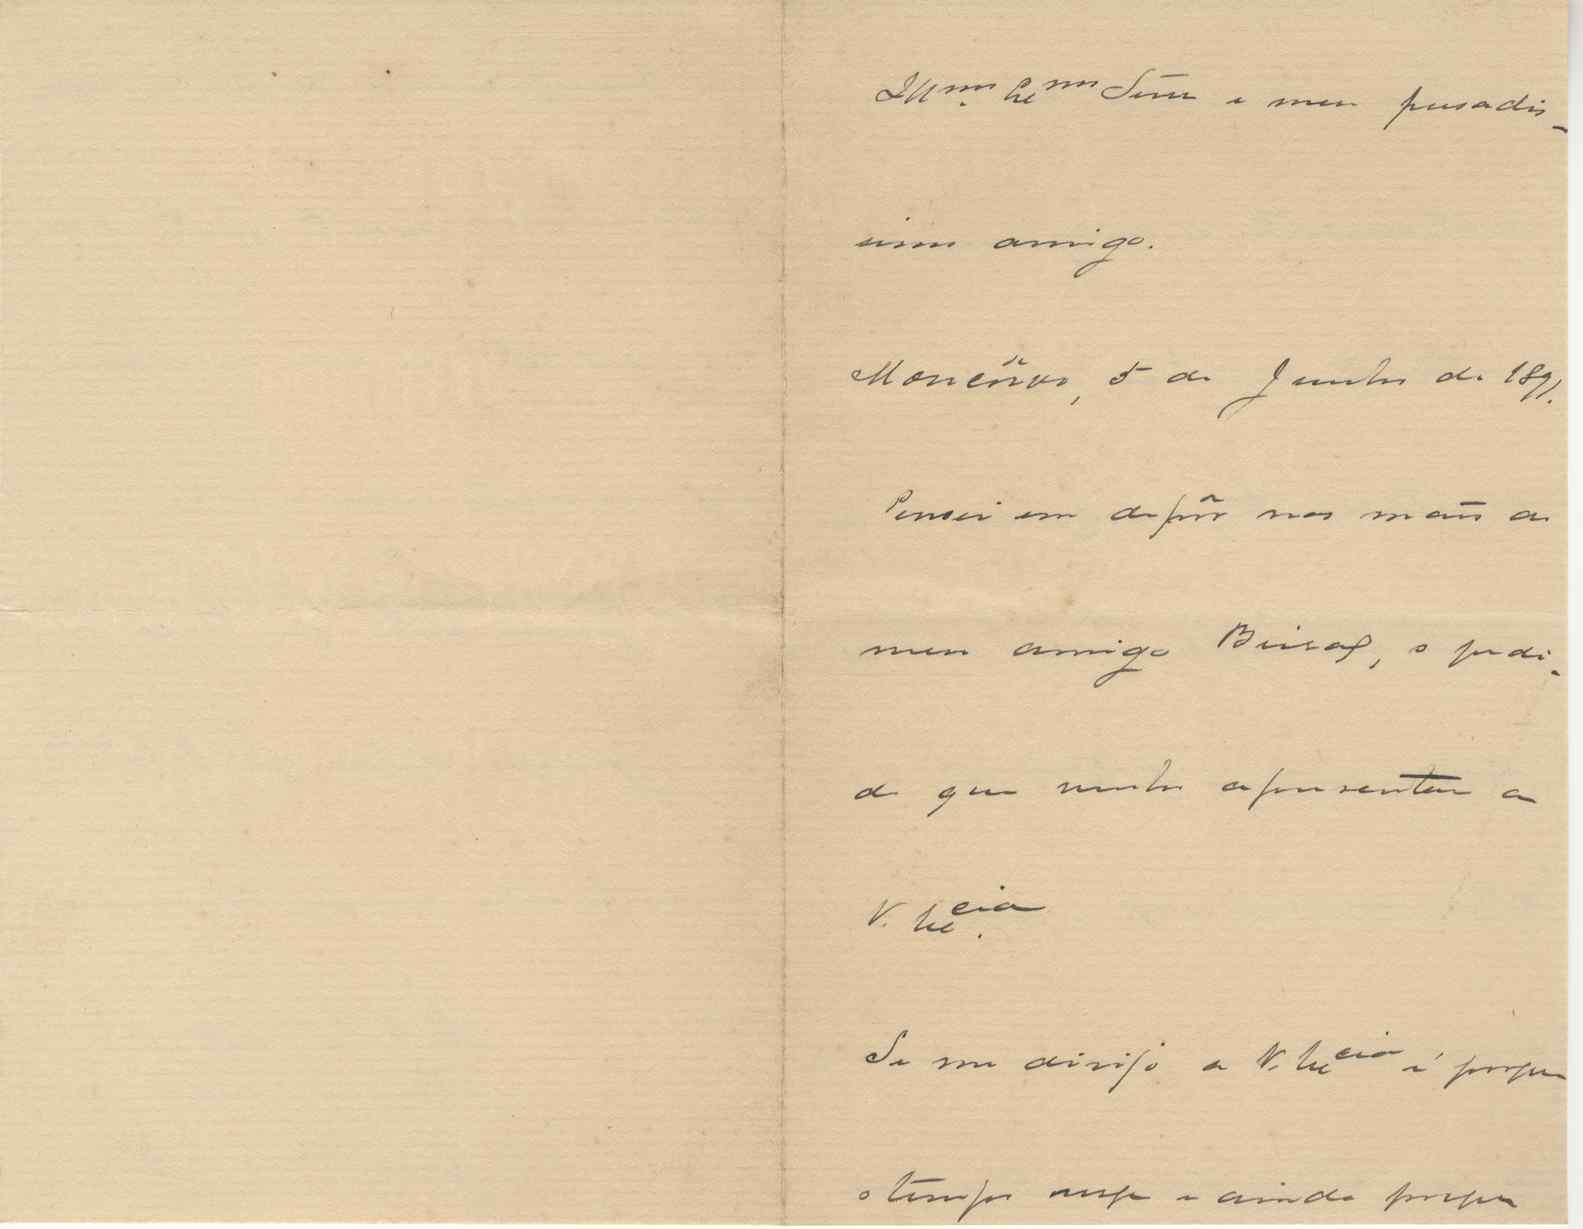 Ill.mo Ex.mo Senr e meu presadis-
simo amigo.
Moncôrvo, 5 de Junho de 1891.
Pensei em depôr nas mãos do
meu amigo, o pedi-
do que venho apresentar a
V. Ex.cia
Se me dirijo a V. Ex.cia é porque
o tempo urge e ainda porque